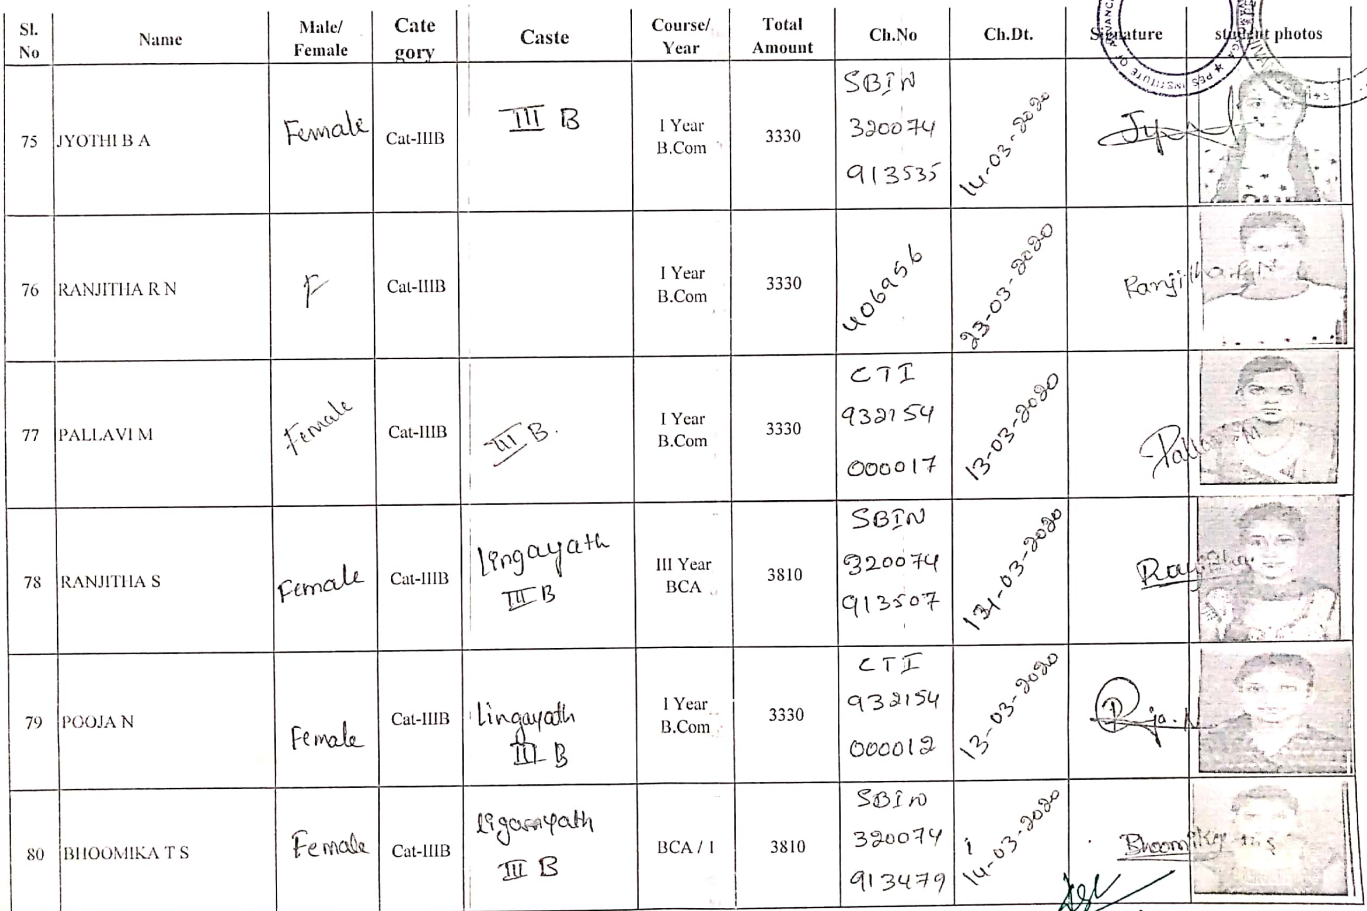 Sl. No Name Male/ Female Cate gory Caste Course/ Year Total Amount Ch.No Ch.Dt. Signature student photos
PES INSTITUTE OF ADVANC
75 JYOTHI B A Female Cat-IIIB III B I Year B.Com 3330 SBIN 320074 913535 14-03-2020
76 RANJITHA R N F Cat-IIIB I Year B.Com 3330 406956 23-03-2020 Ranjitha R N
77 PALLAVI M Female Cat-IIIB III B. I Year B.Com 3330 CTI 932154 000017 13-03-2020 Pallavi M
78 RANJITHA S Female Cat-IIIB Lingayath III B III Year BCA 3810 SBIN 320074 913507
79 POOJA N Female Cat-IIIB Lingayath III B I Year B.Com 3330 CTI 932154 000012 13-03-2020
80 BHOOMIKA T S Female Cat-IIIB III B BCA / I 3810 SBIN 320074 913479 14-03-2020 Bhoomika T S